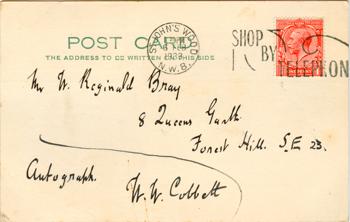 POST CARD
THE ADDRESS TO BE WRITTEN ON THIS SIDE
ST JOHN'S WOOD
1933
N.W.8.
SHOP
BY
TELEPHON
Mr W. Reginald Bray
8 Queens Garth
Forest Hill. S.E 23.
Autograph.
W. W. Cobbett